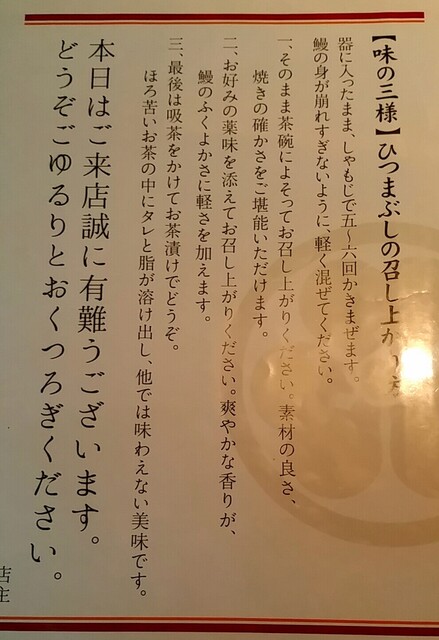 【味の三様】ひつまぶしの召し上が
器に入ったまま、しゃもじで五～六回かきまぜます。
鰻の身が崩れすぎないように、軽く混ぜてください。
一、そのまま茶碗によそってお召し上がりください。素材の良さ、
焼きの確かさをご堪能いただけます。
二、お好みの薬味を添えてお召し上がりください。爽やかな香りが、
鰻のふくよかさに軽さを加えます。
三、最後は吸茶をかけてお茶漬けでどうぞ。
ほろ苦いお茶の中にタレと脂が溶け出し、他では味わえない美味です。
本日はご来店誠に有難うございます。
どうぞごゆるりとおくつろぎください。
店主